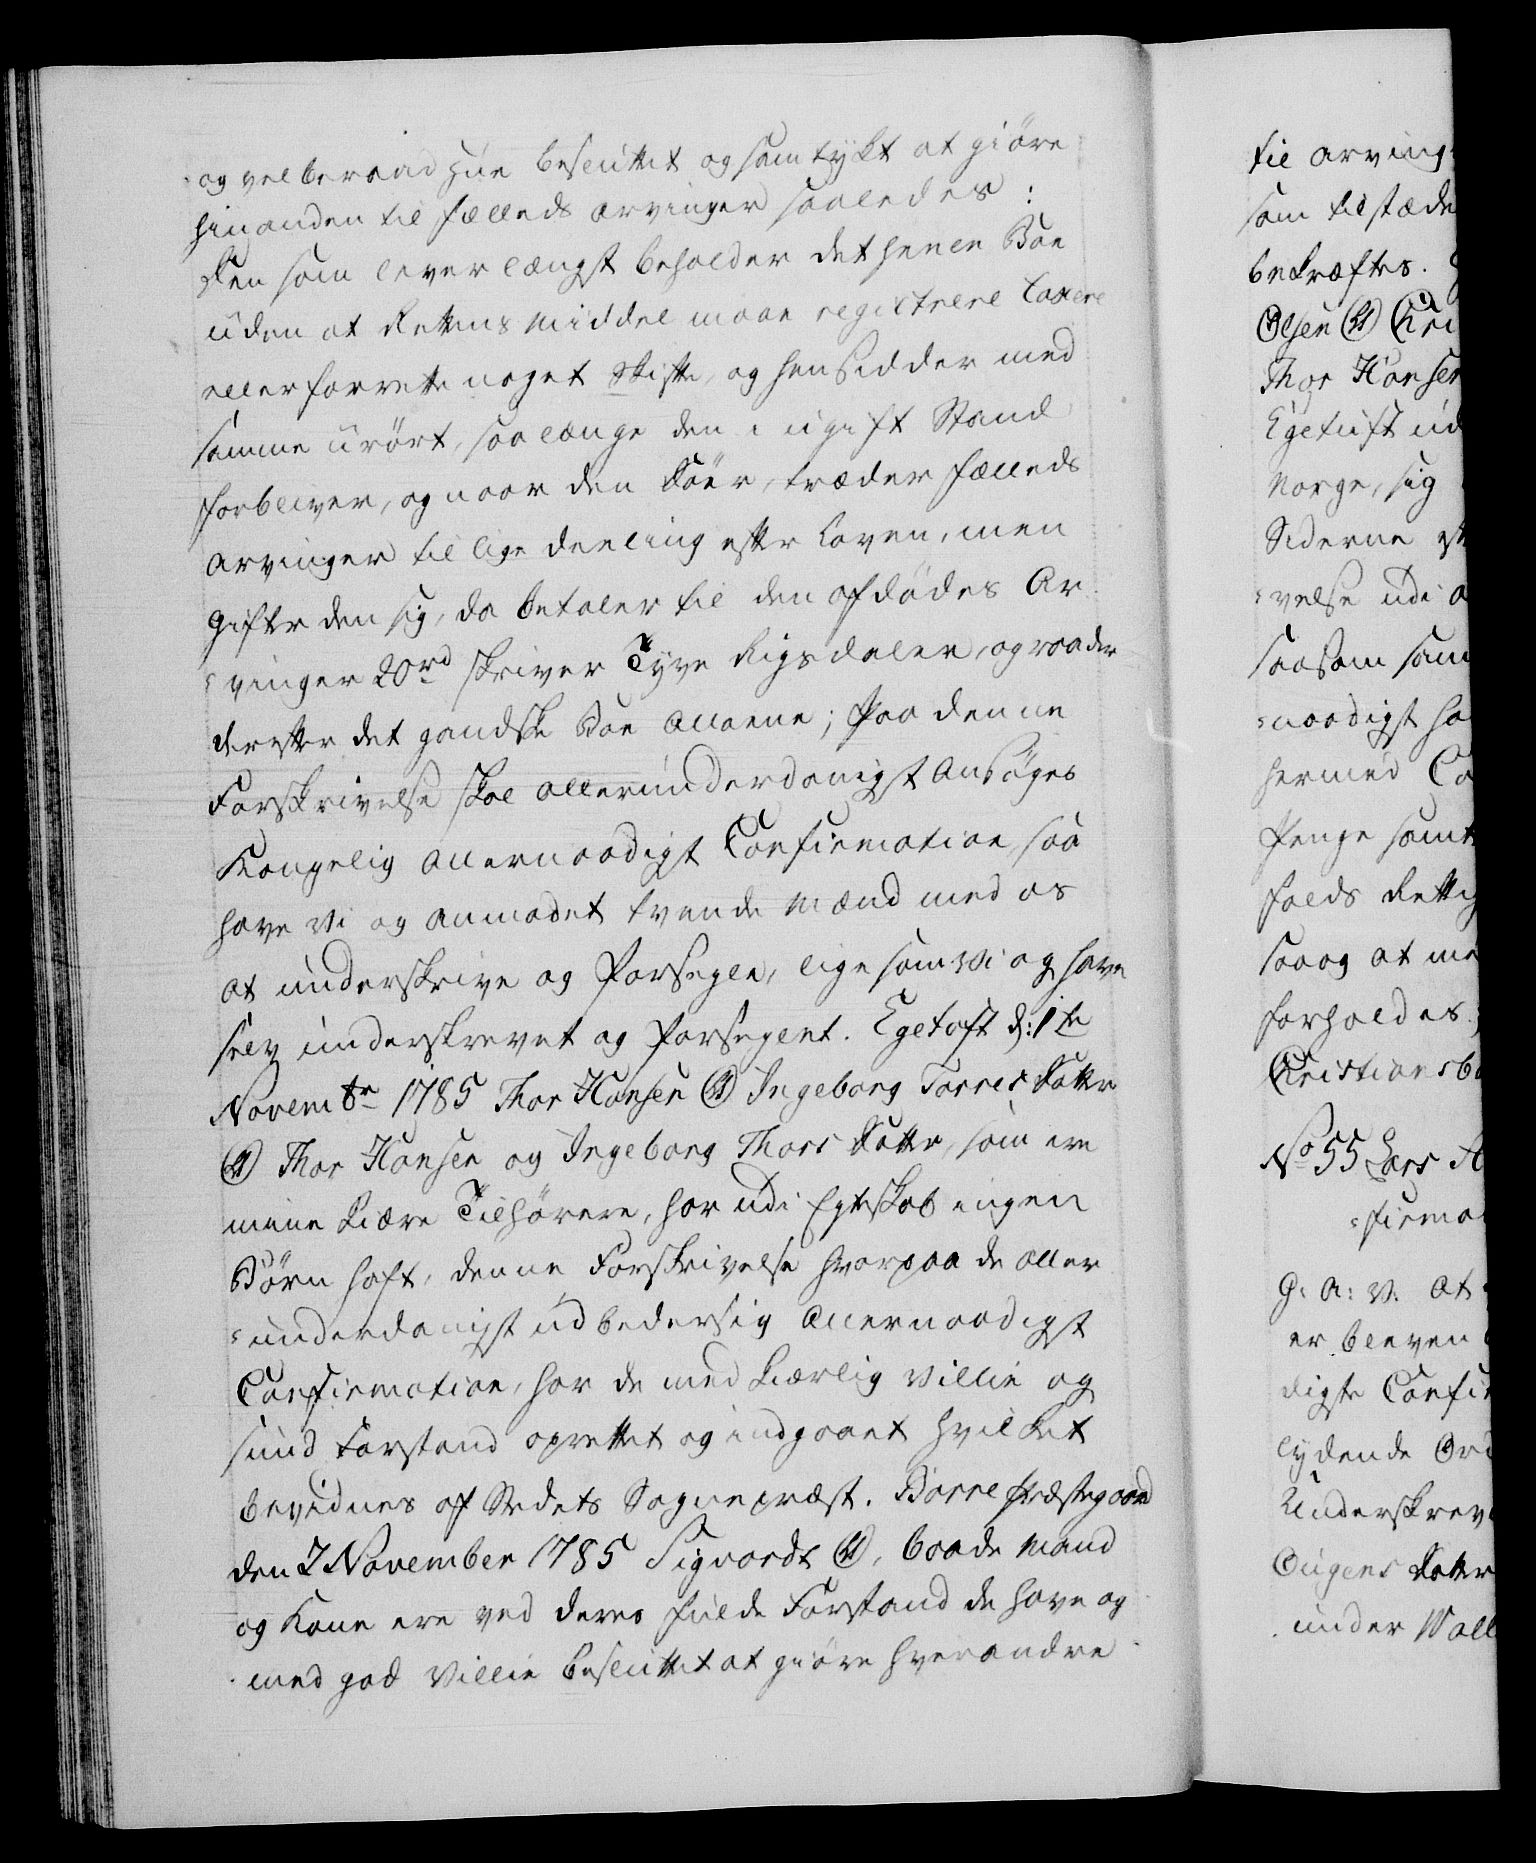 og velberaad Hue besluttet og samtykt at giöre
hinanden til fælleds arvinger saaledes:
den som lever længst beholder det heele Boe
uden at Rettens Middel maae registrere taxere
eller forrette noget Skifte, og hensidder med
samme urört, saalænge den i ugift Stand
forbliver, og naar den döer, træder fælleds
arvinger til lige deeling efter Loven, men
gifter den sig, da betaler til den afdödes Ar-
vinger 20rd skriver Tyve Rigsdaler, og raader
derefter det gandske Boe Alleene; Paa denne
Forskrivelse skal allerunderdanigst ansöges
Kongelig allernaadigst Confirmation, saa
have Vi og anmodet tvende Mænd med os
at underskrive og forsegle, lige som vi og have
selv underskrevet og forseglet. Egetoft d: 1te
Novembr 1785 Thor Hansen (LS) Ingeborg Torres datter
(LS) Thor Hansen og Ingeborg Thors datter, som ere
mine kiære Tilhörere, har udi Egteskab ingen
Börn haft, denne Forskrivelse hvorpaa de aller-
underdanigst udbeder sig Allernaadigst
Confirmation, har de med kiærlig Villie og
sund Forstand oprettet og indgaaet hvilket
bevidnes af Stedets Sognepræst. Borre Præstegaard
den 7 November 1785 Sigvardt (LS), baade Mand
og Kone ere ved deres fulde Forstand de have og
med god Villie besluttet at giöre hverandre
til arving
som tilstæde
bekræftes.
Olsen (LS) Chri
Thor Hansen
Egetuft ud
Norge, sig
Siderne eft
velse udi a
saasom sam
naadigst ha
hermed Co
Penge samt
falds Rettig
saa og at me
forholdes
Christiansbo
No 55 Lars A
firmat
G: A: V. at
er bleven
digste Confir
lydende Ord
Underskrev
Ougens datter
under Wall